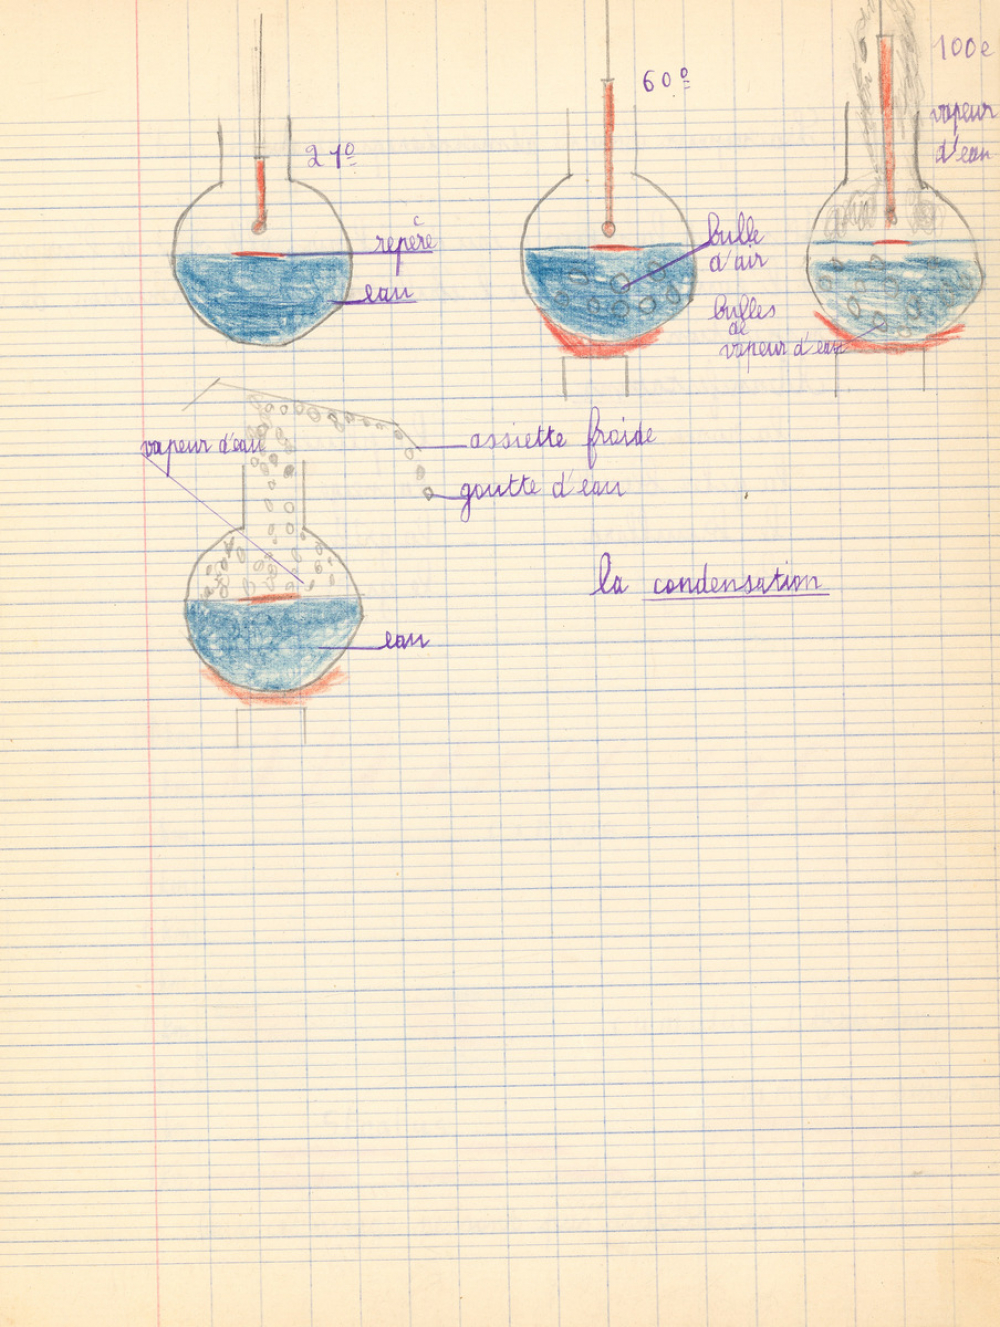 21º
repère
eau
60º
bulle
d'air
100e
vapeur
d'eau
bulles
de
vapeur d'eau
vapeur d'eau
assiette froide
goutte d'eau
eau
la condensation